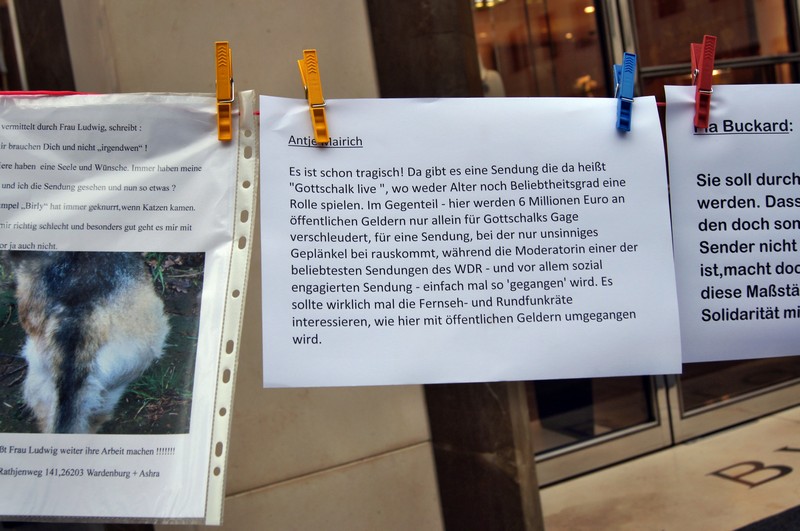 vermittelt durch Frau Ludwig, schreibt :
ir brauchen Dich und nicht „irgendwen“ !
iere haben eine Seele und Wünsche. Immer haben meine
und ich die Sendung gesehen und nun so etwas ?
mpel „Birly“ hat immer geknurrt,wenn Katzen kamen.
mir richtig schlecht und besonders gut geht es mir mit
or ja auch nicht.
ßt Frau Ludwig weiter ihre Arbeit machen !!!!!!!
Rathjenweg 141,26203 Wardenburg + Ashra
Antje Mairich
Es ist schon tragisch! Da gibt es eine Sendung die da heißt
"Gottschalk live ", wo weder Alter noch Beliebtheitsgrad eine
Rolle spielen. Im Gegenteil - hier werden 6 Millionen Euro an
öffentlichen Geldern nur allein für Gottschalks Gage
verschleudert, für eine Sendung, bei der nur unsinniges
Geplänkel bei rauskommt, während die Moderatorin einer der
beliebtesten Sendungen des WDR - und vor allem sozial
engagierten Sendung - einfach mal so 'gegangen' wird. Es
sollte wirklich mal die Fernseh- und Rundfunkräte
interessieren, wie hier mit öffentlichen Geldern umgegangen
wird.
Pia Buckard:
Sie soll durch
werden. Dass
den doch son
Sender nicht
ist,macht doc
diese Maßstä
Solidarität mi